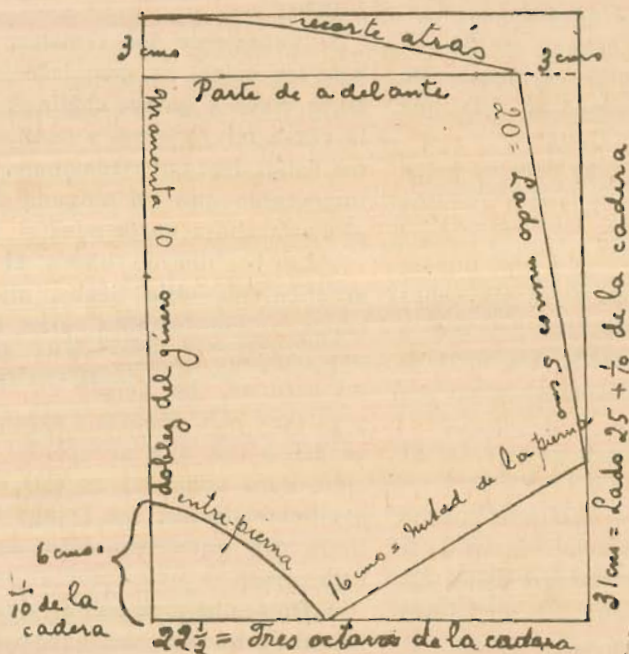 recorte atrás
3 cms
3 cms
Parte de adelante
manareta 10
20 = Lado menos 5 cms
31 cms = Lado 25 + 1/10 de la cadera
doblez del género
entre-pierna
16 cms = mitad de la pierna
6 cms.
1/10 de la
cadera
22 1/2 = Tres octavos de la cadera